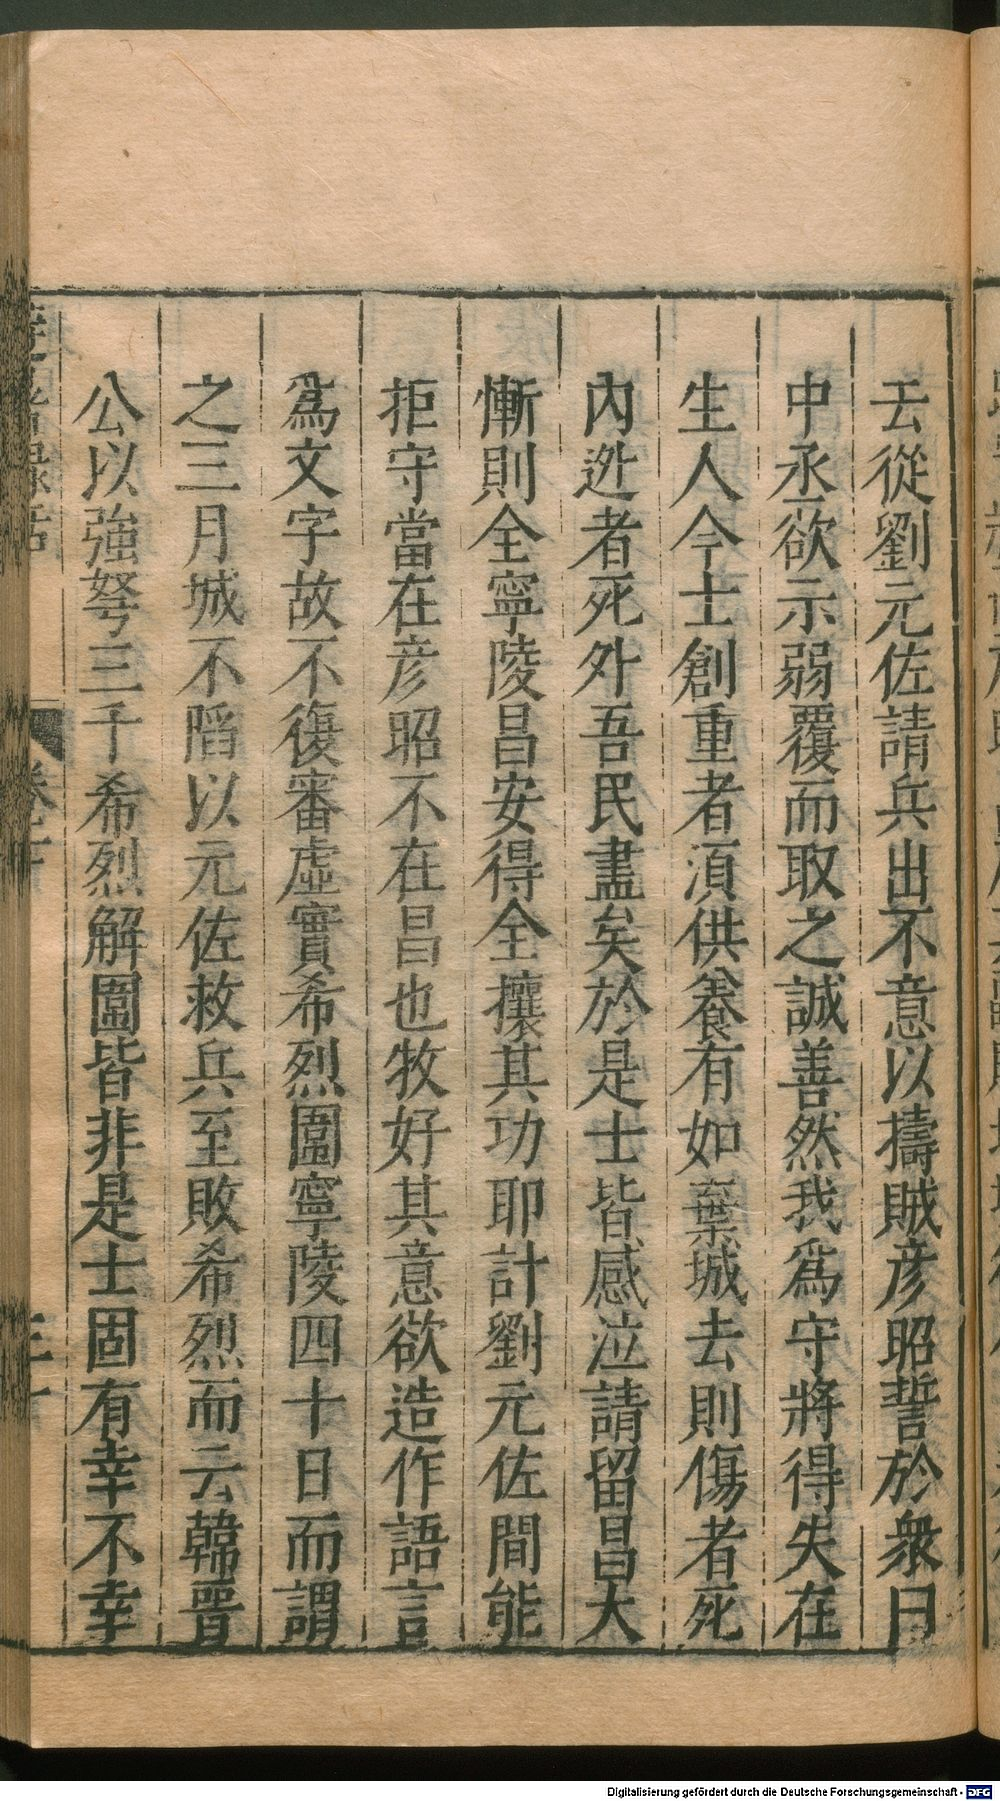 去從劉元佐請兵出不意以擣賊彦昭誓於衆曰
中丞欲示弱覆而取之誠善然我爲守將得失在
生人今士創重者湏供養有如葉城去則傷者死
內逃者死外吾民盡矣於是士皆感泣請留昌大
慚則全寧陵昌安得全攘其功耶計劉元佐間能
拒守當在彦昭不在昌也牧好其意欲造作語言
爲文字故不復審虛實希烈圍寧陵四十日而謂
之三月城不䧟以元佐救兵至敗希烈而云韓晋
公以強弩三千希烈解圍皆非是士固有幸不幸
Digitalisierung gefördert durch die Deutsche Forschungsgemeinschaft - DFG